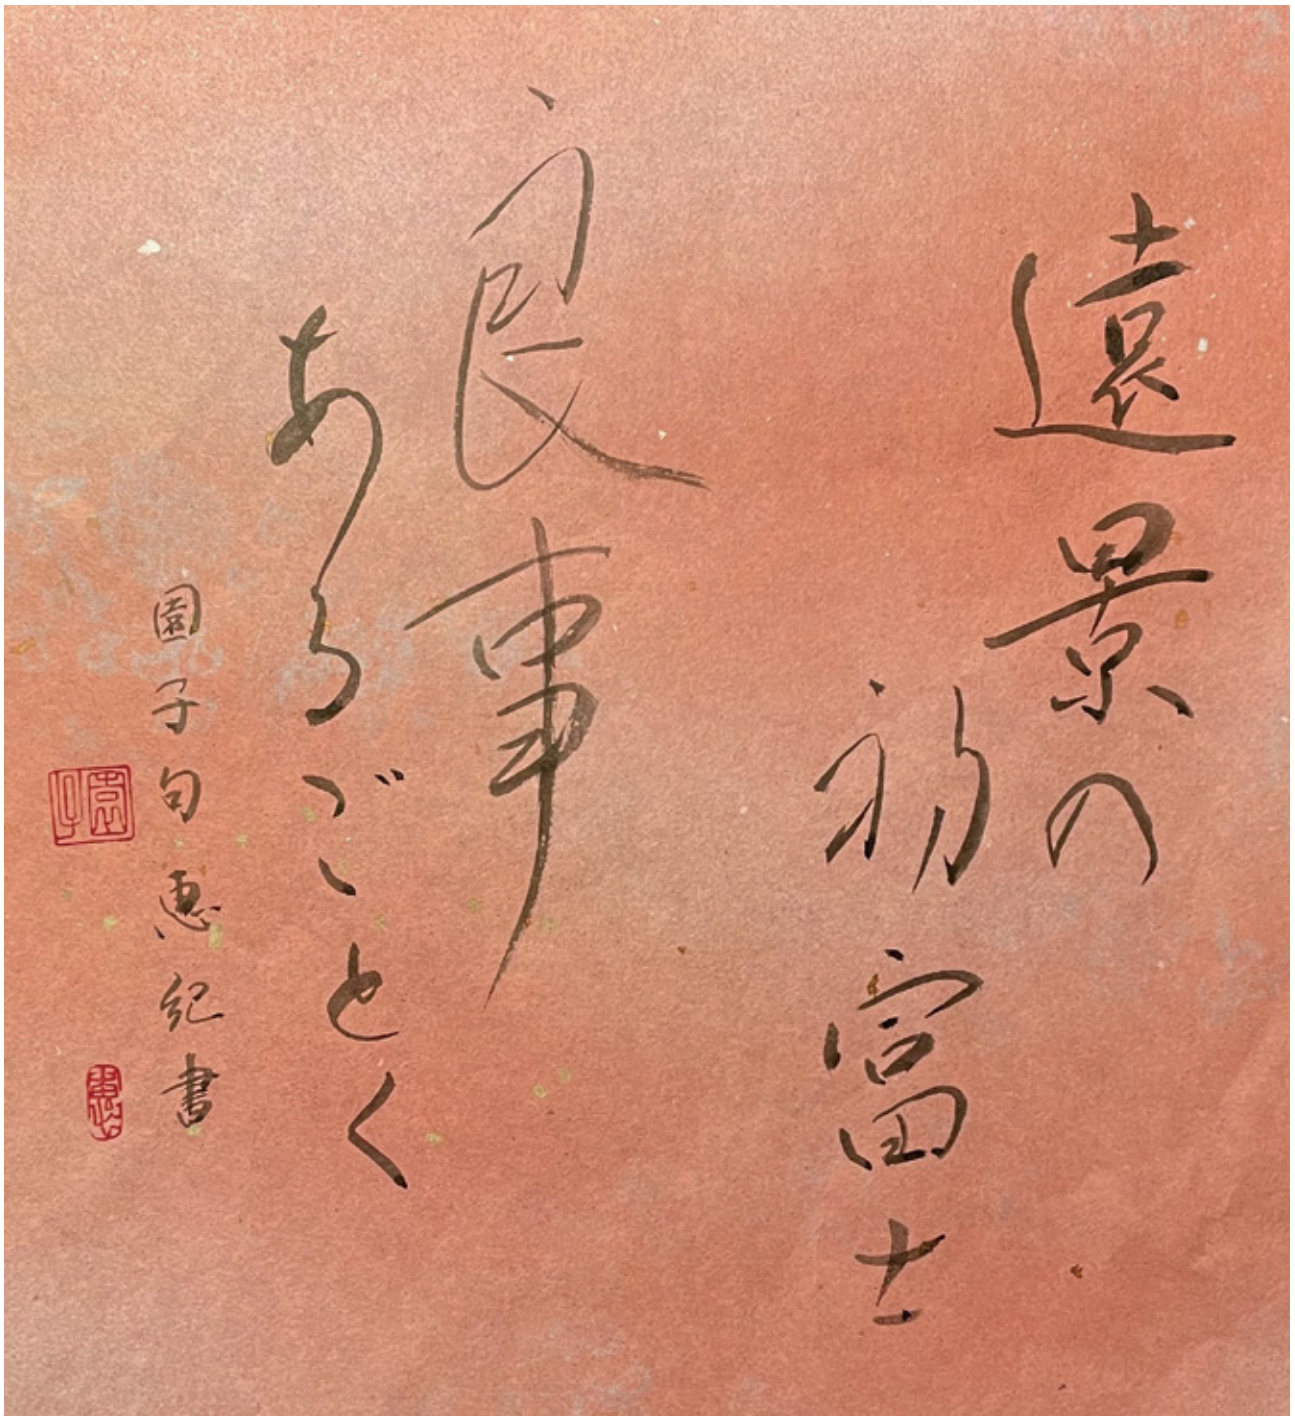 遠景の
初富士
良事
あるごとく
園子句恵紀書
園子
恵